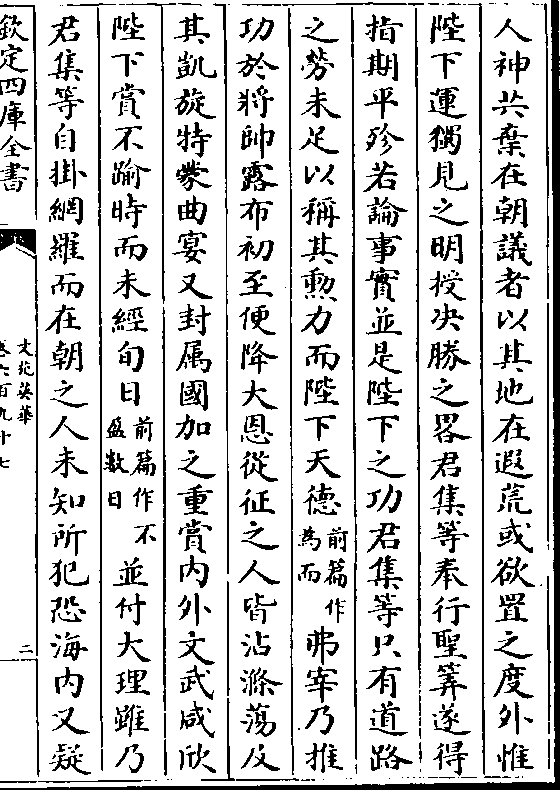 人神共棄在朝議者以其地在遐荒或欲置之度外惟
陛下運獨見之明授决勝之畧君集等奉行聖筭遂得
指期平殄若論事實並是陛下之功君集等只有道路
之勞未足以稱其勲力而陛下天德前篇作為而弗宰乃推
功於將帥露布初至便降大恩從征之人皆沾滌蕩及
其凱旋特蒙曲宴又封属國加之重賞内外文武咸欣
陛下賞不踰時而未經旬日前篇作不盈數日並付大理雖乃
君集等自掛網羅而在朝之人未知所犯恐海内又疑
欽定四庫全書
文苑英華
卷六百九十七
二